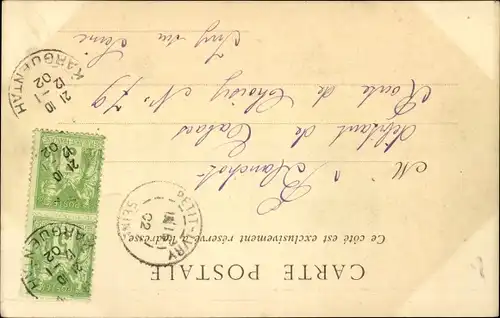 CARTE POSTALE
Ce côté est exclusivement réservé à l'adresse
M
Blanchot
Débitant de Tabacs
Route de Choisy N. 79
Ivry sur Seine
PETIT-IVRY
SEINE
02
KARGUENTAH
21 10
02
KARGUENTAH
21 10
02
KARGUENTAH
02